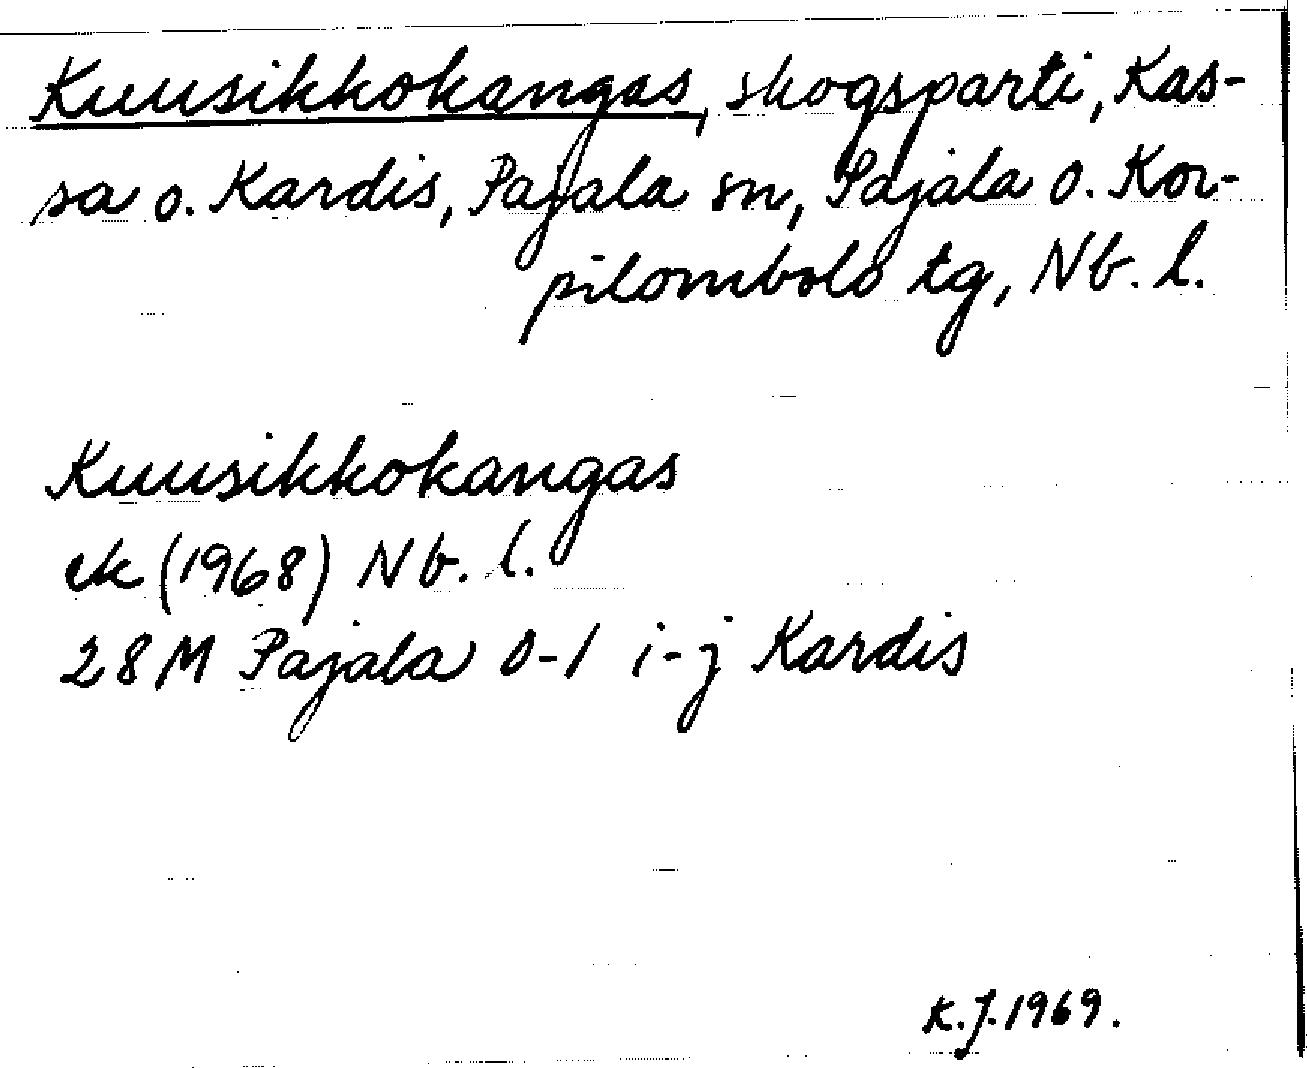 Kuusikkokangas, skogsparti, Kas-
sa o. Kardis, Pajala sn, Pajala o. Kor-
pilombolo tg, Nb. l.
Kuusikkokangas
ek (1968) Nb. l.
28M Pajala 0-1 i-j Kardis
K.J. 1969.